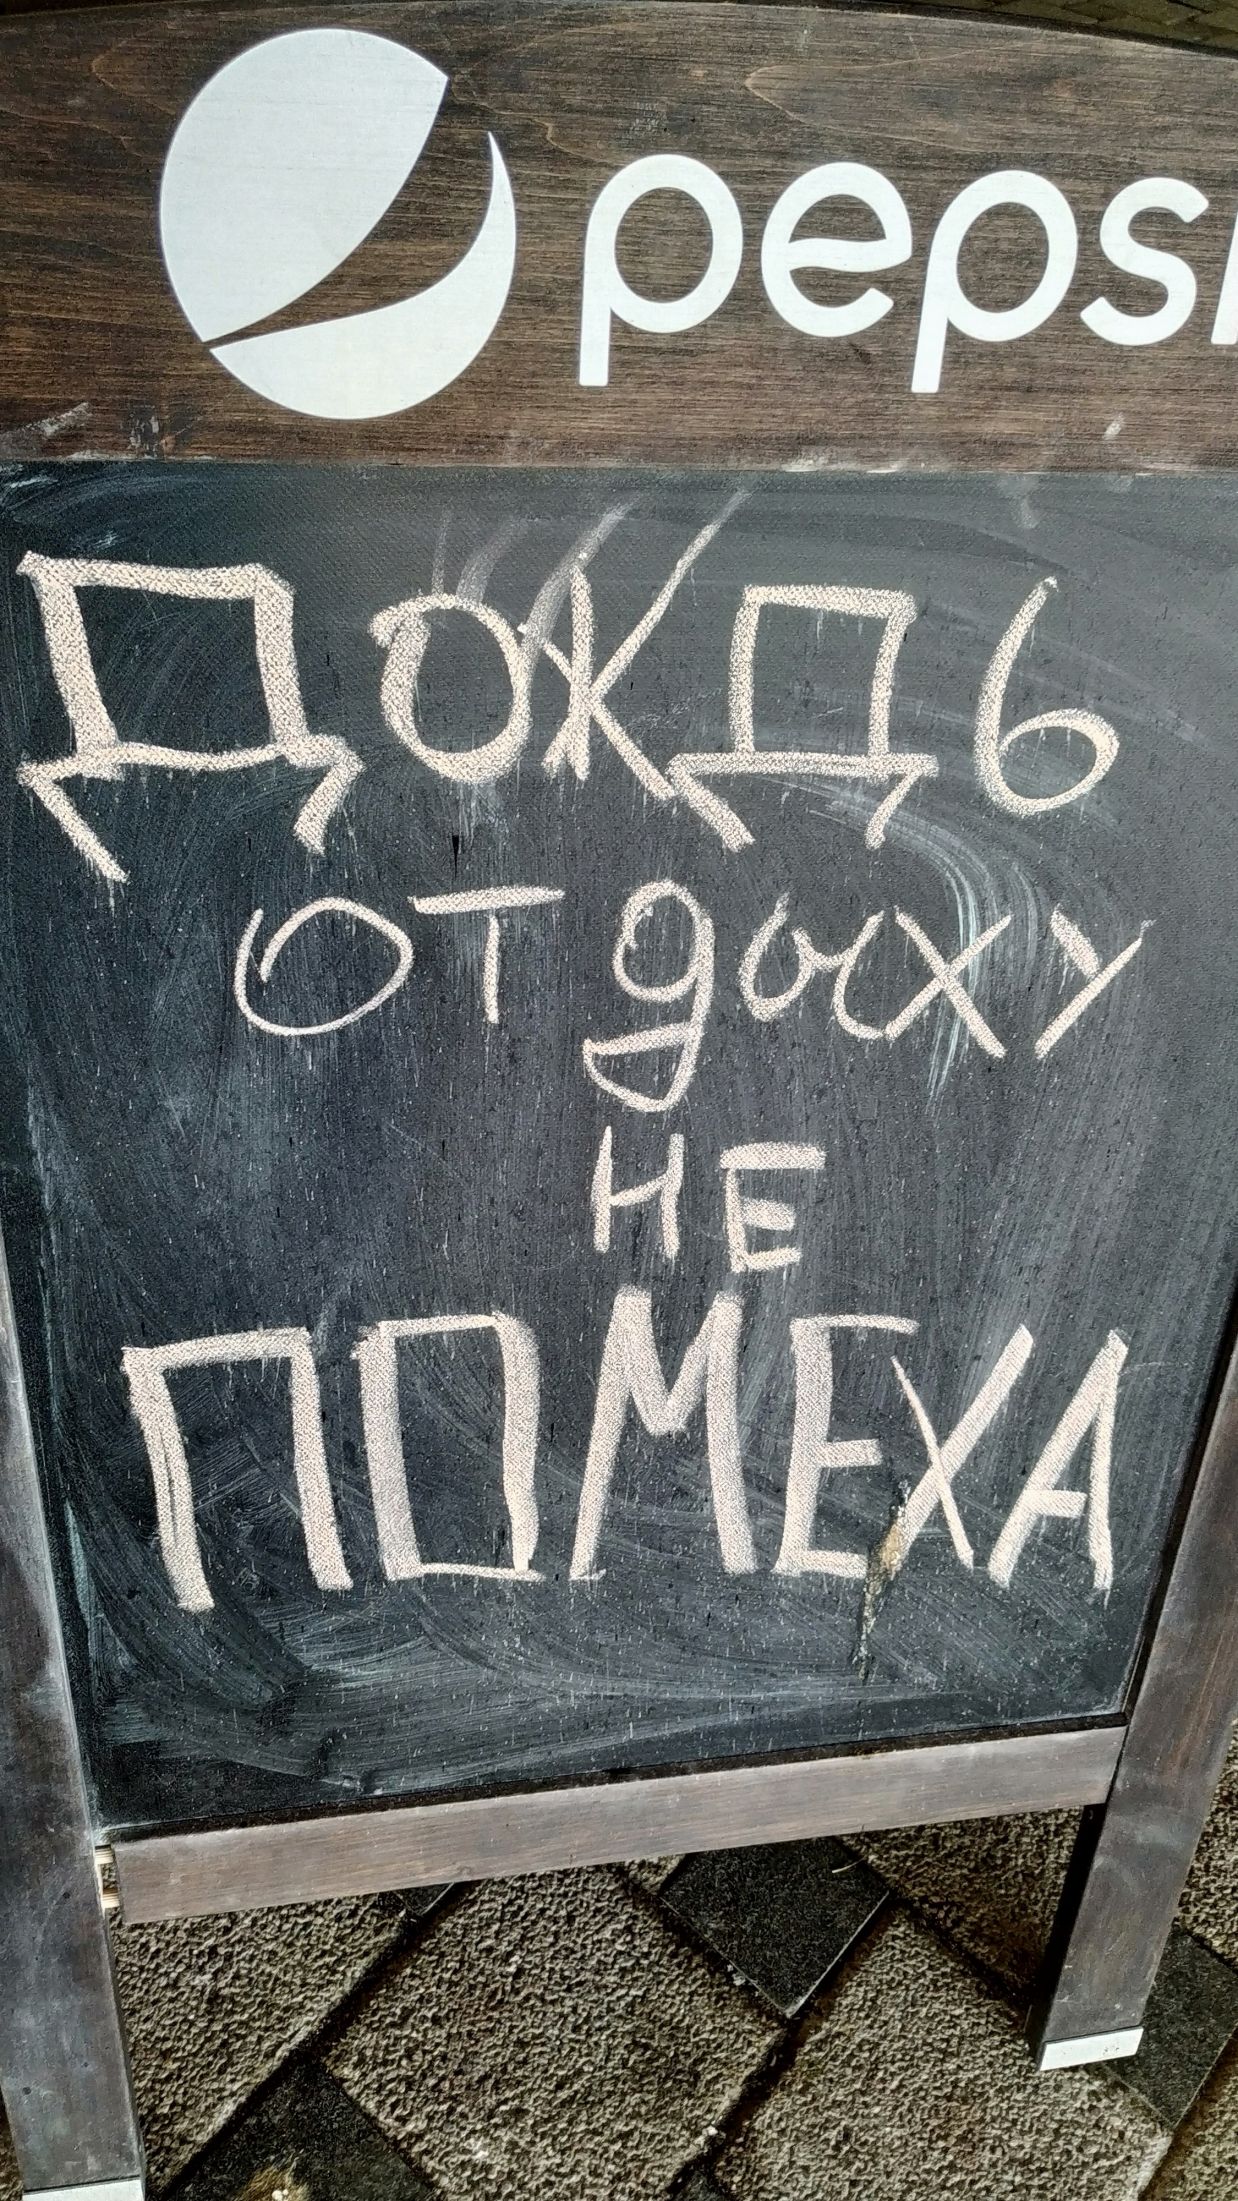 pepsi
ДОЖДЬ
отдыху
НЕ
ПОМЕХА